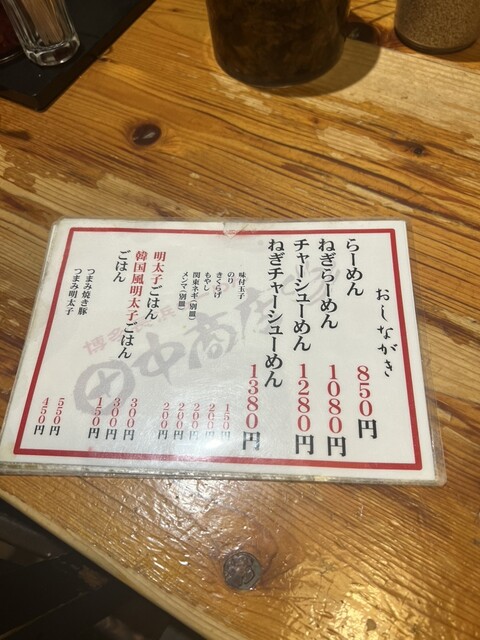 おしながき
らーめん 850円
ねぎらーめん 1080円
チャーシューめん 1280円
ねぎチャーシューめん 1380円
味付玉子
のり
きくらげ
もやし
関東ネギ(別皿)
メンマ(別皿)
150円
200円
200円
200円
200円
明太子ごはん 300円
韓国風明太子ごはん 300円
ごはん 150円
つまみ焼き豚 550円
つまみ明太子 450円
田中商店